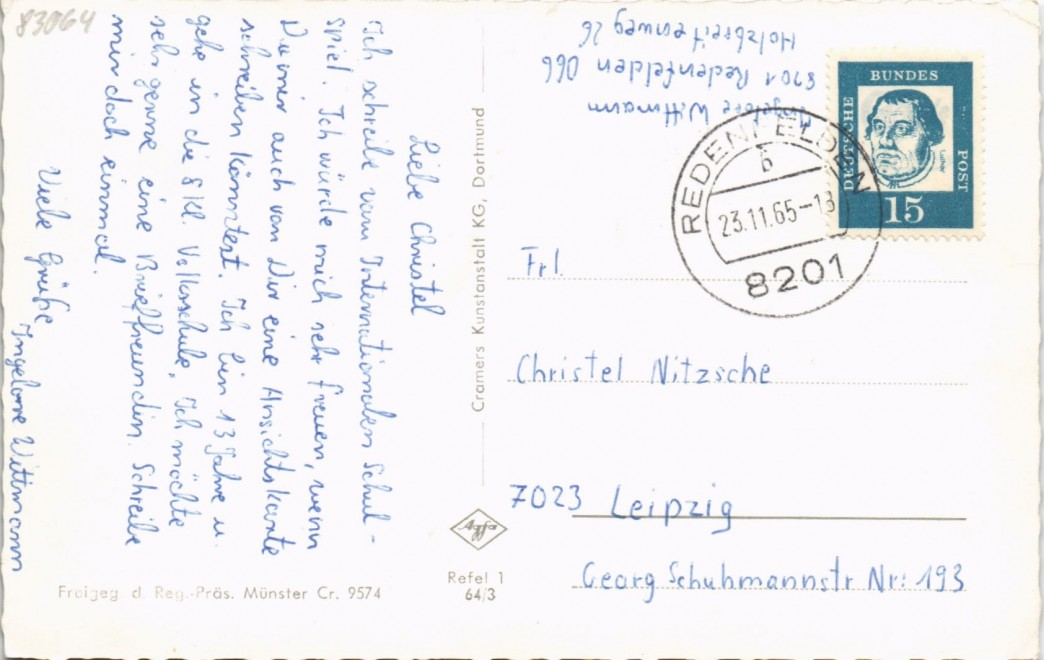 83064
Liebe Christel
Ich schreibe vom Internationalen Schul-
spiel. Ich würde mich sehr freuen, wenn
Du mir auch von Dir eine Ansichtskarte
schreiben könntest. Ich bin 13 Jahre u.
gehe in die 8 Kl. Volksschule, Ich möchte
sehr gerne eine Brieffreundin. Schreibe
mir doch einmal.
Viele Grüße
Ingelore Wittmann
Cramers Kunstanstalt KG, Dortmund
Freigeg. d. Reg.-Präs. Münster Cr. 9574
Agfa
Refel 1
64/3
Ingelore Wittmann
8201 Redenfelden 066
Holzbreitenweg 26
DEUTSCHE
BUNDES
POST
Luther
15
REDENFELDEN
b
23.11.65-18
8201
Frl.
Christel Nitzsche
7023 Leipzig
Georg Schuhmannstr Nr: 193